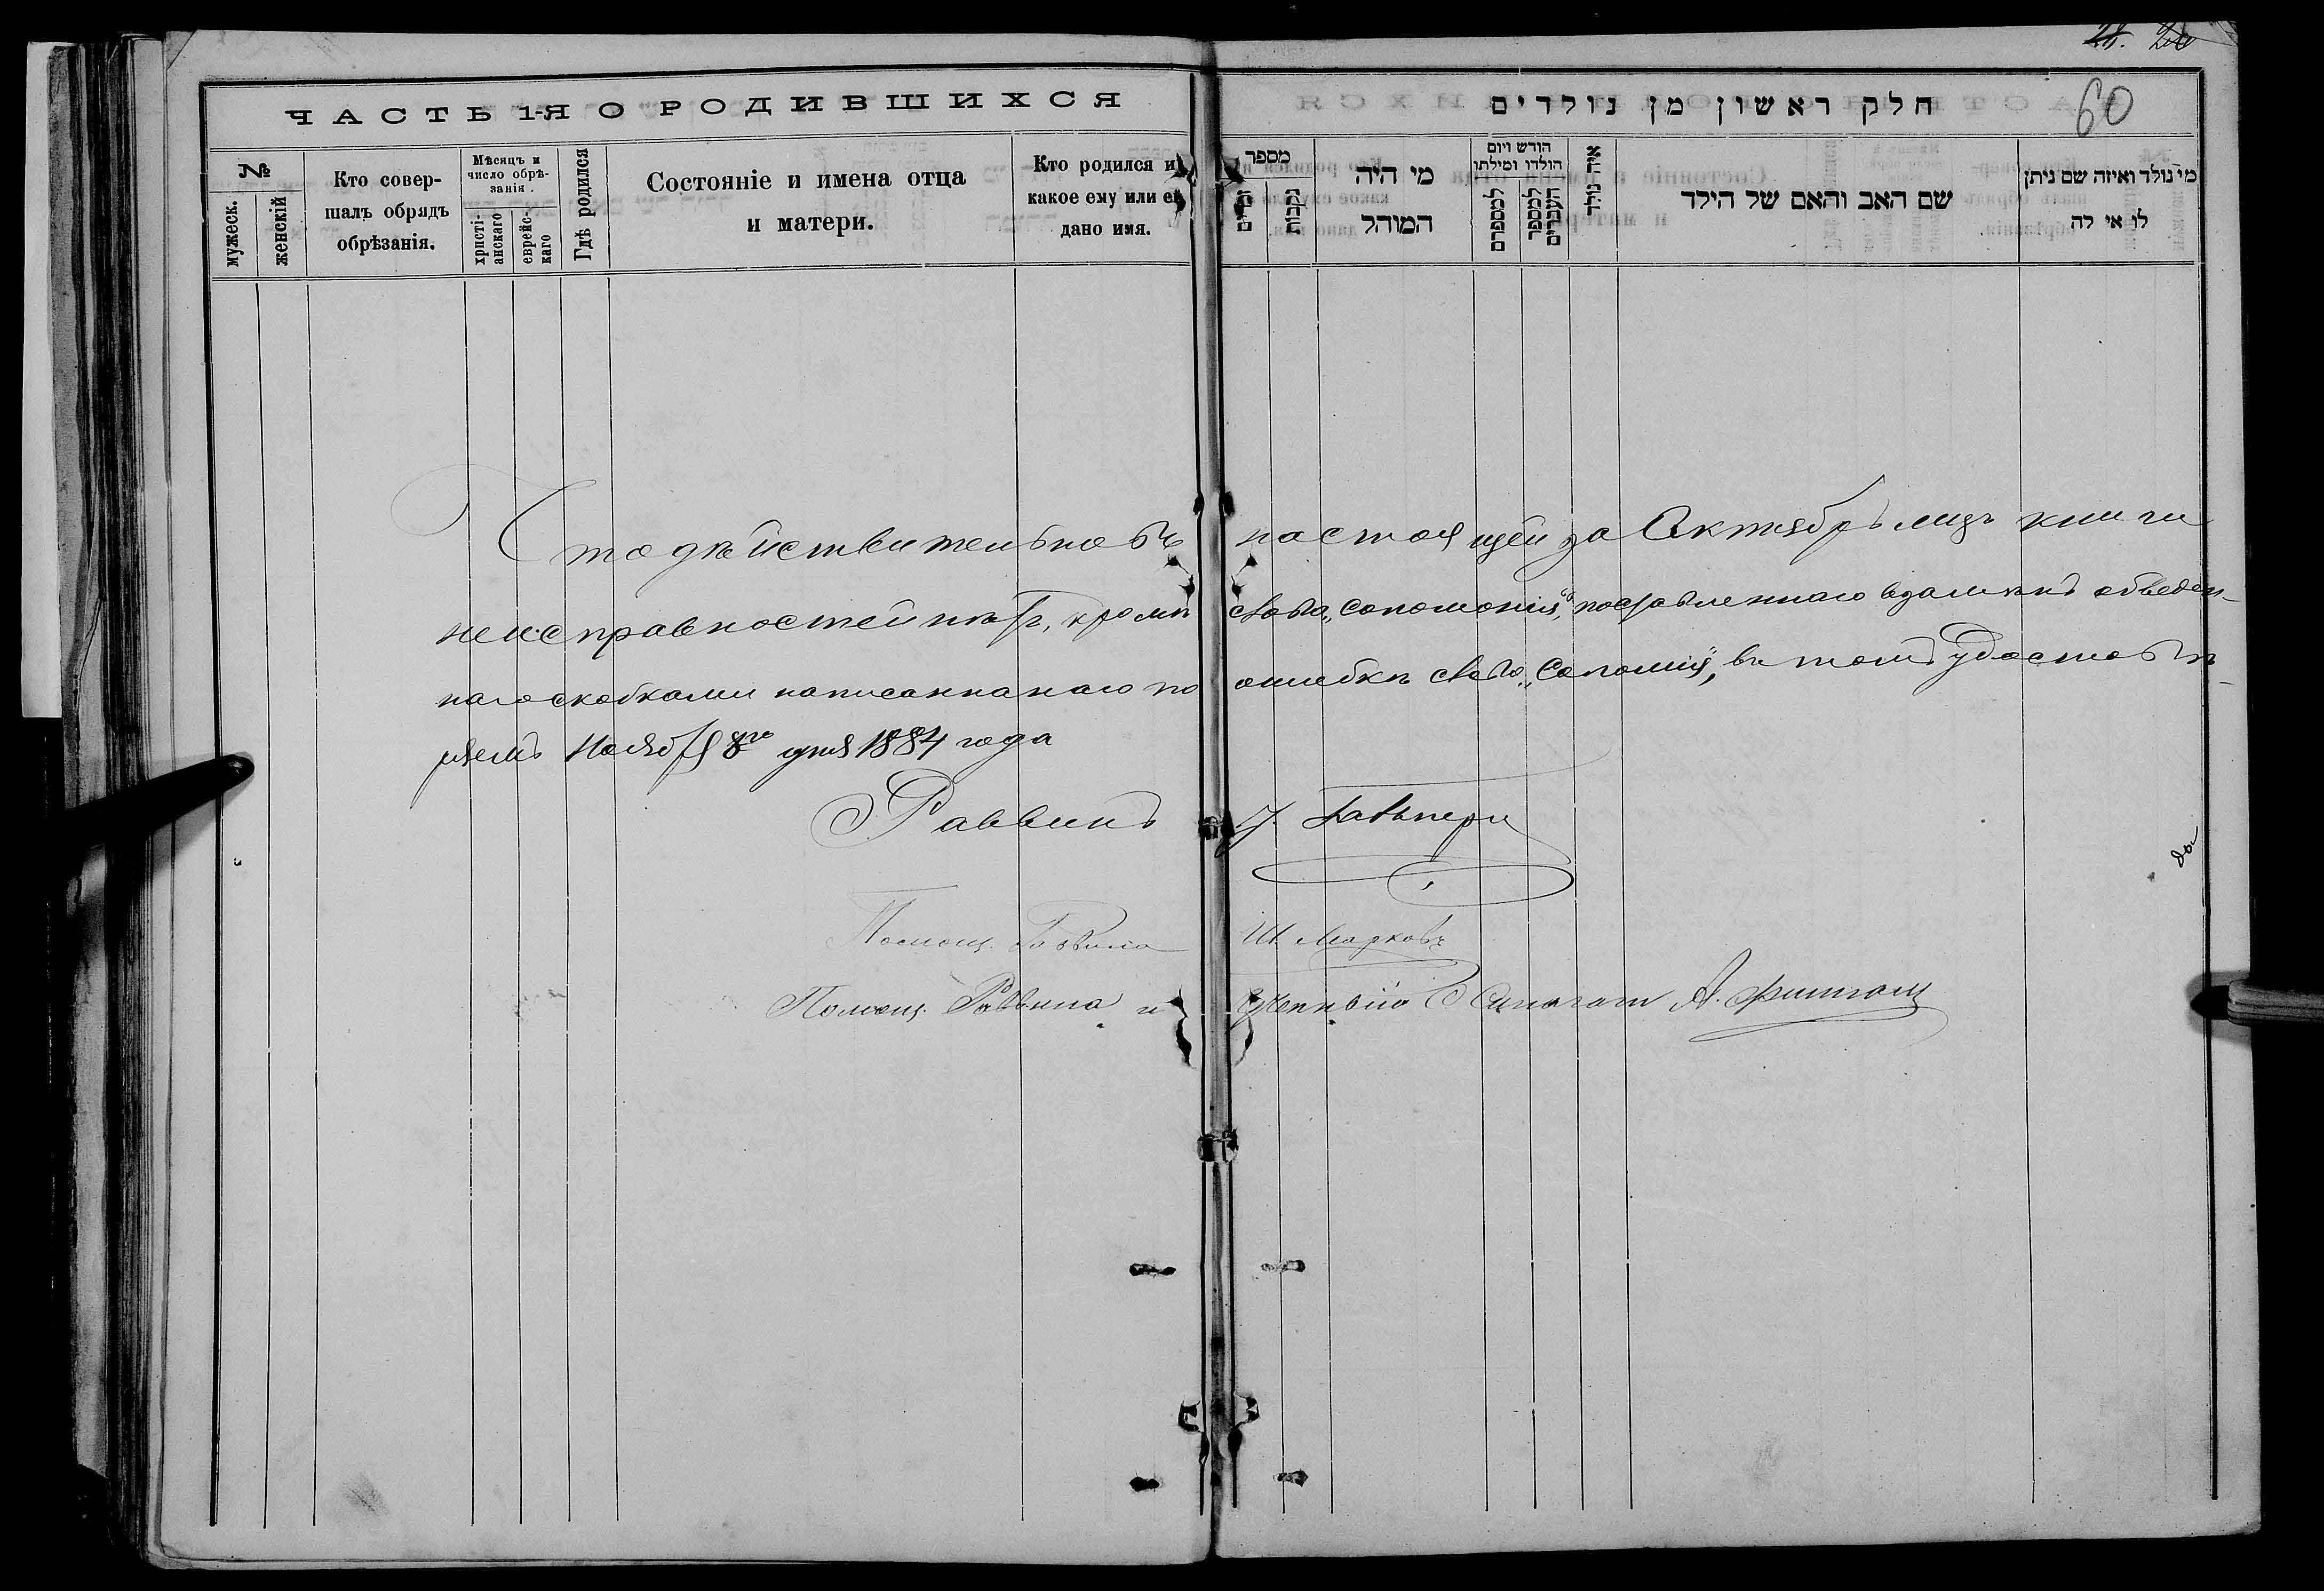 60
ЧАСТЬ 1-Я О РОДИВШИХСЯ
№
мужеск.
женскій
Кто совер-
шалъ обрядъ
обрѣзанія.
Мѣсяцъ и
число обрѣ-
занія.
христі-
анскаго
еврейс-
каго
Гдѣ родился
Состояніе и имена отца
и матери.
Кто родился и
какое ему или ей
дано имя.
חלק ראשון מן נולדים
מספר
נקבות
מי היה
המוהל
חודש ויום
הולדו ומילתו
למספרם
למספר
העברים
איה נולד
שם האב והאם של הילד
מי נולד ואיזה שם ניתן
לו אי לה
Что дѣйствительно въ настоящей за Октябрь мцъ книги
неисправностей нѣтъ, кромѣ слова „Соломонія", поставленнаго обведен-
наго скобками написаннанаго по ошибкѣ слова „Соломія", въ томъ удостовѣ-
ряемъ Ноября 8го дня 1884 года
Раввинъ
Помощ. Раввина Ш. Марковъ
Помощ. Раввина и Ученный